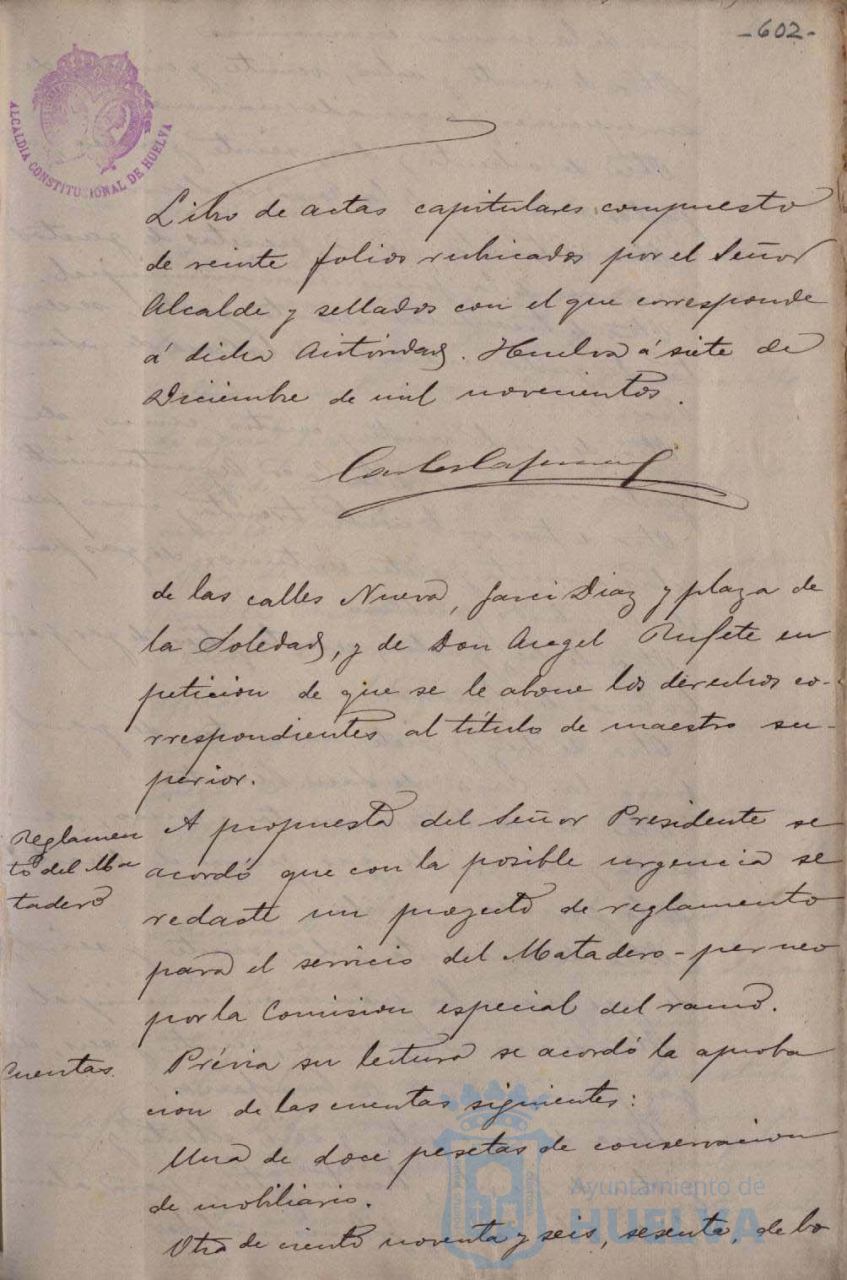 -602-
ALCALDIA CONSTITUCIONAL DE HUELVA
Libro de actas capitulares compuesto
de veinte folios rubricados por el Señor
Alcalde y sellados con el que corresponde
á dicha Autoridad. Huelva á siete de
Diciembre de mil novecientos.
de las calles Nueva, Garci Diaz y plaza de
la Soledad, y de Don Angel Rufete en
peticion de que se le abone los derechos co-
rrespondientes al título de maestro su-
perior.
Reglamen
to del Ma
tadero
A propuesta del Señor Presidente se
acordó que con la posible urgencia se
redacte un proyecto de reglamento
para el servicio del Matadero-perneo
por la Comision especial del ramo.
Cuentas.
Prévia su lectura se acordó la aproba
cion de las cuentas siguientes:
Una de doce pesetas de conservacion
de mobiliario.
Otra de ciento noventa y seis, sesenta, de bo
Ayuntamiento de
HUELVA